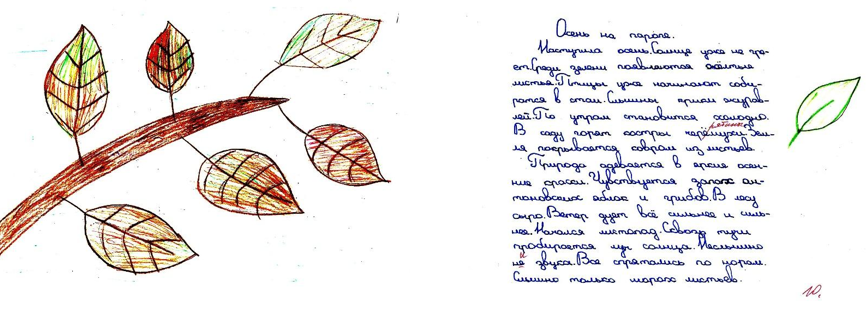 Осень на пороге.
Наступила осень. Солнце уже не гре-
ет. Среди зелени появляются жёлтые
листья. Птицы уже начинают соби-
раться в стаи. Слышны крики журав-
лей. По утрам становится холодно.
рябины
В саду горят костры черёмухи. Зем-
ля покрывается ковром из листьев.
Природа одевается в яркие осен-
ние краски. Чувствуется запах ан-
тоновских яблок и грибов. В лесу
сыро. Ветер дует всё сильнее и силь-
нее. Начался листопад. Сквозь тучи
пробирается луч солнца. Неслышно
и
не звука. Все спрятались по норам.
Слышно только шорох листьев.